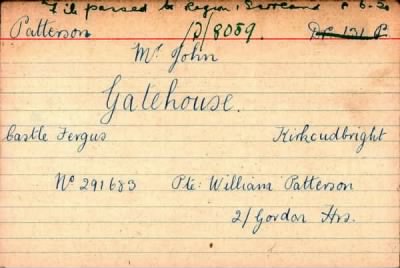 File passed to Region, Scotland 8-6-20
Patterson P/8059.
Mr. John
Gatehouse.
Castle Fergus Kirkcudbright
No 291683 Pte: William Patterson
2/ Gordon Hrs.